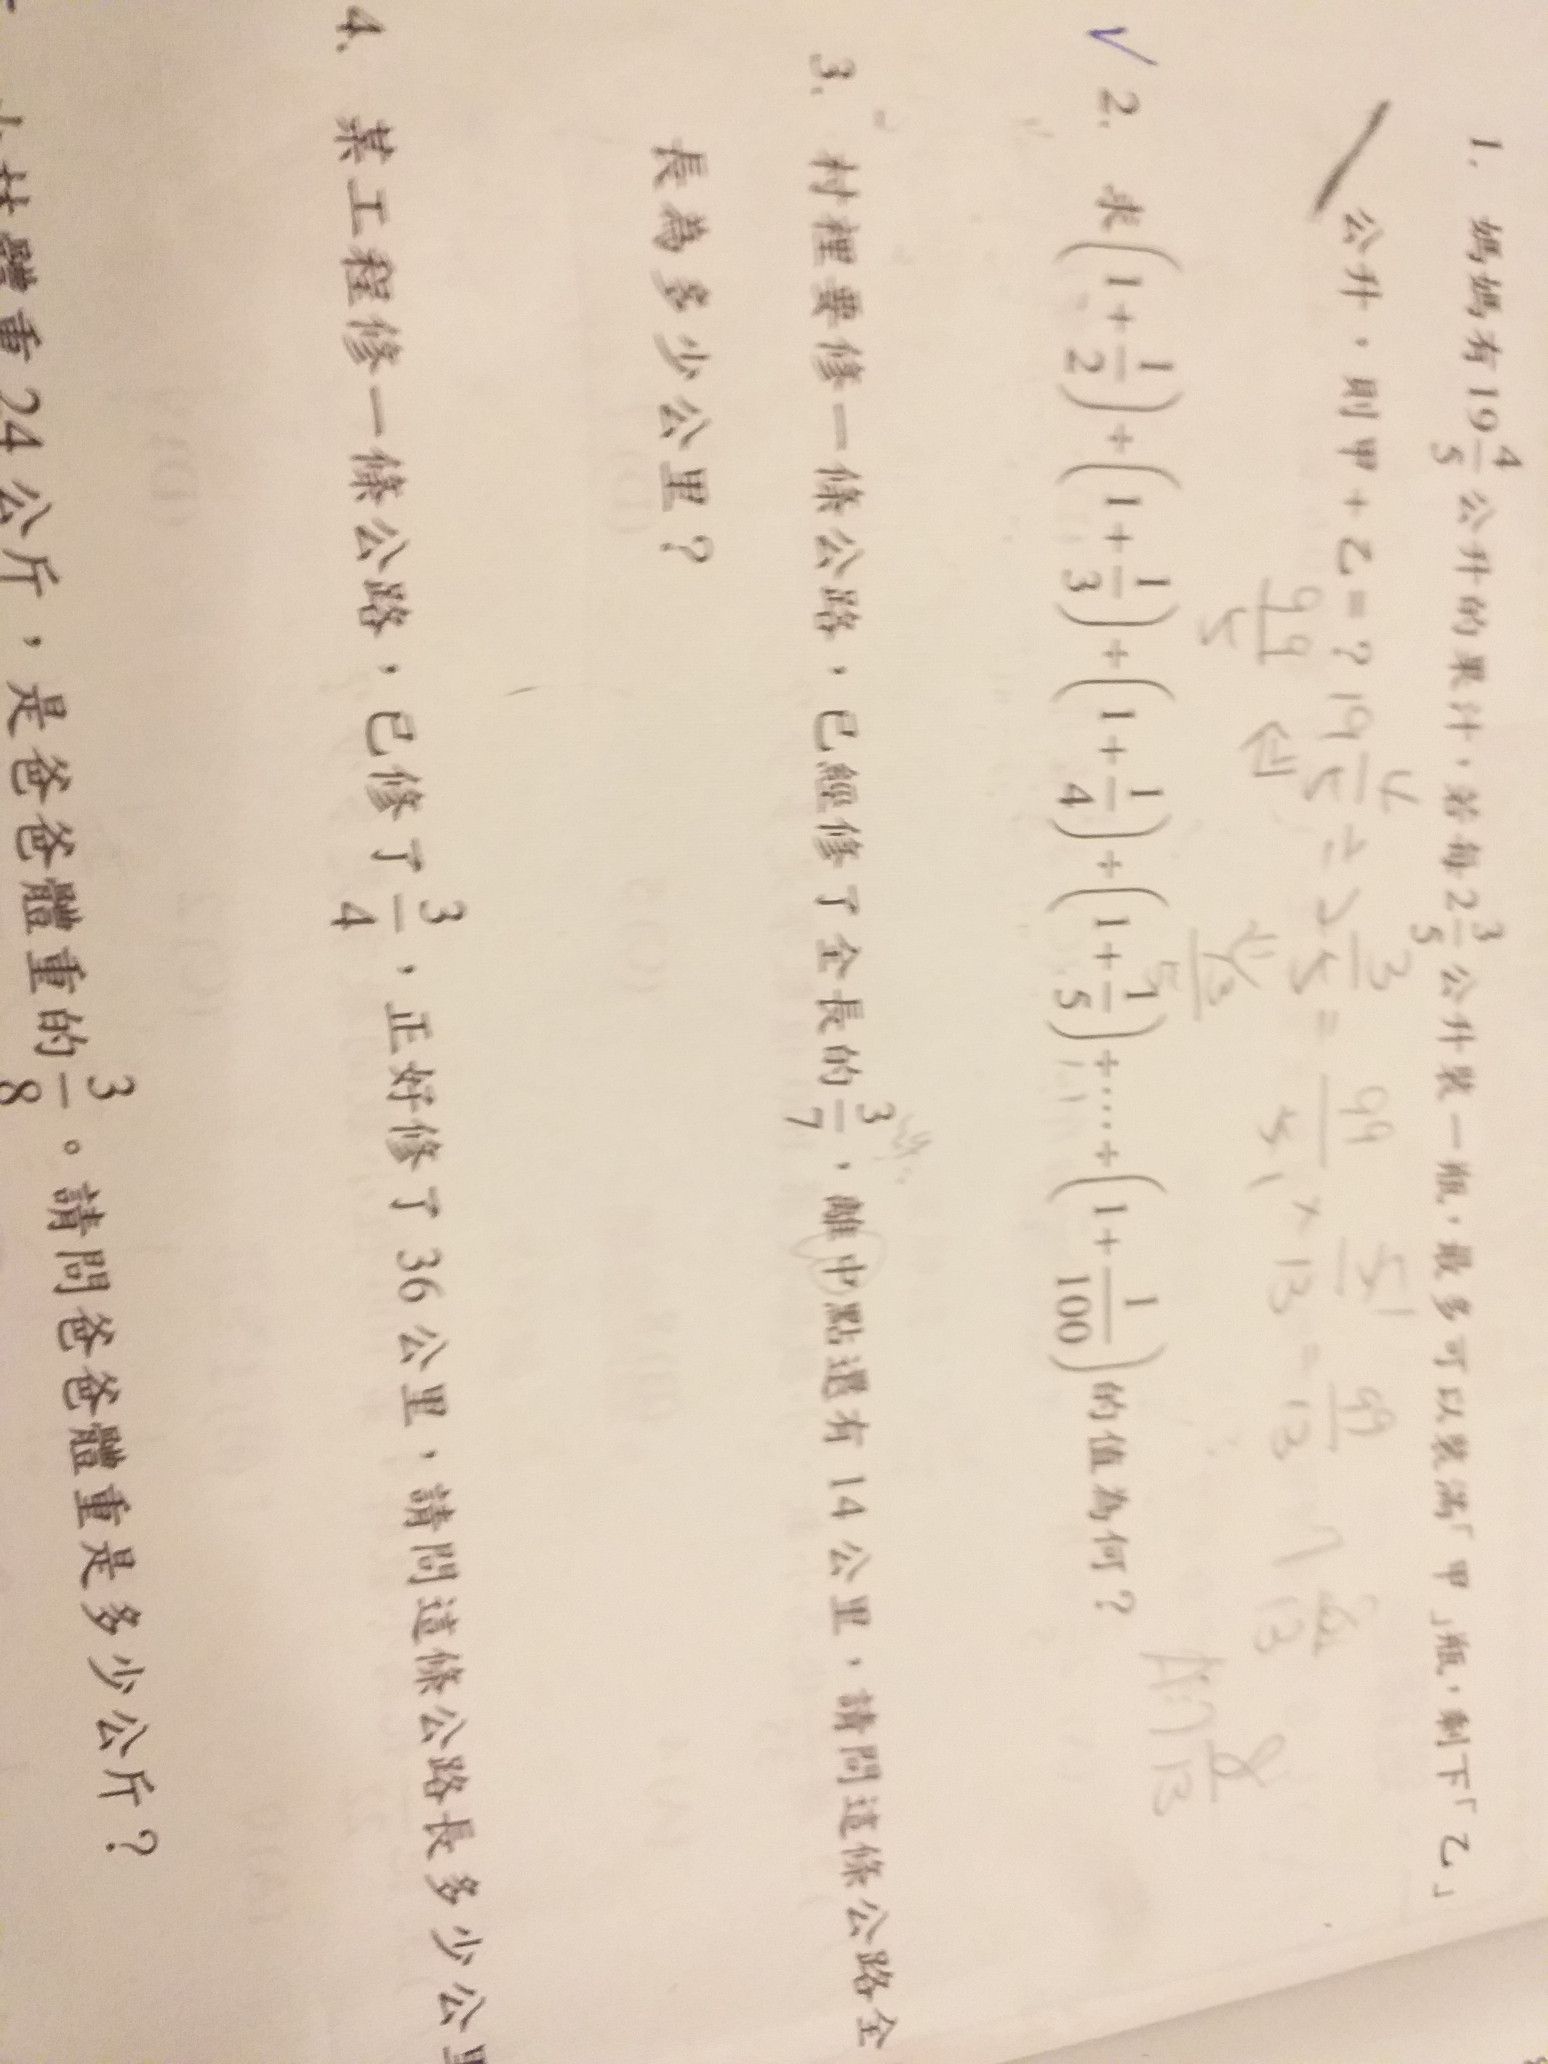 1. 媽媽有19 4/5 公升的果汁，若每2 3/5 公升裝一瓶，最多可以裝滿「甲」瓶，剩下「乙」
公升，則甲+乙=? 19 4/5 ÷ 2 3/5 = 99/5 × 5/13 = 99/13 = 7 8/13
99/5
13/5
A:7 8/13
✓ 2. 求(1+1/2)÷(1+1/3)÷(1+1/4)÷(1+1/5)÷⋯÷(1+1/100)的值為何？
3. 村裡要修一條公路，已經修了全長的3/7，離中點還有14公里，請問這條公路全
長為多少公里？
4. 某工程修一條公路，已修了3/4，正好修了36公里，請問這條公路長多少公里
體重24公斤，是爸爸體重的3/8。請問爸爸體重是多少公斤？